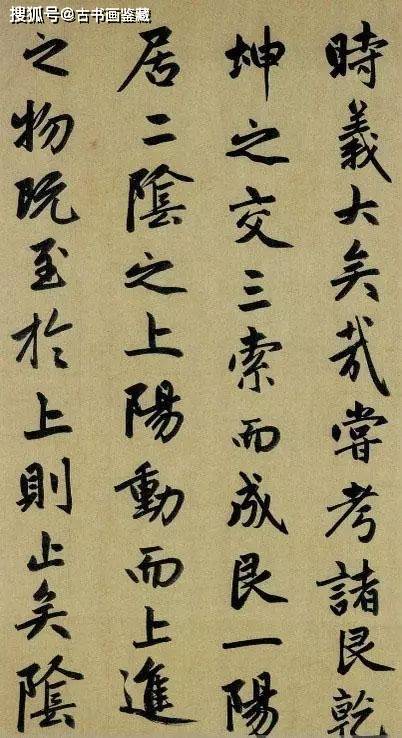 搜狐号@古书画鉴藏
時義大矣哉嘗考諸艮乾
坤之交三索而成艮一陽
居二陰之上陽動而上進
之物既至於上則止矣陰